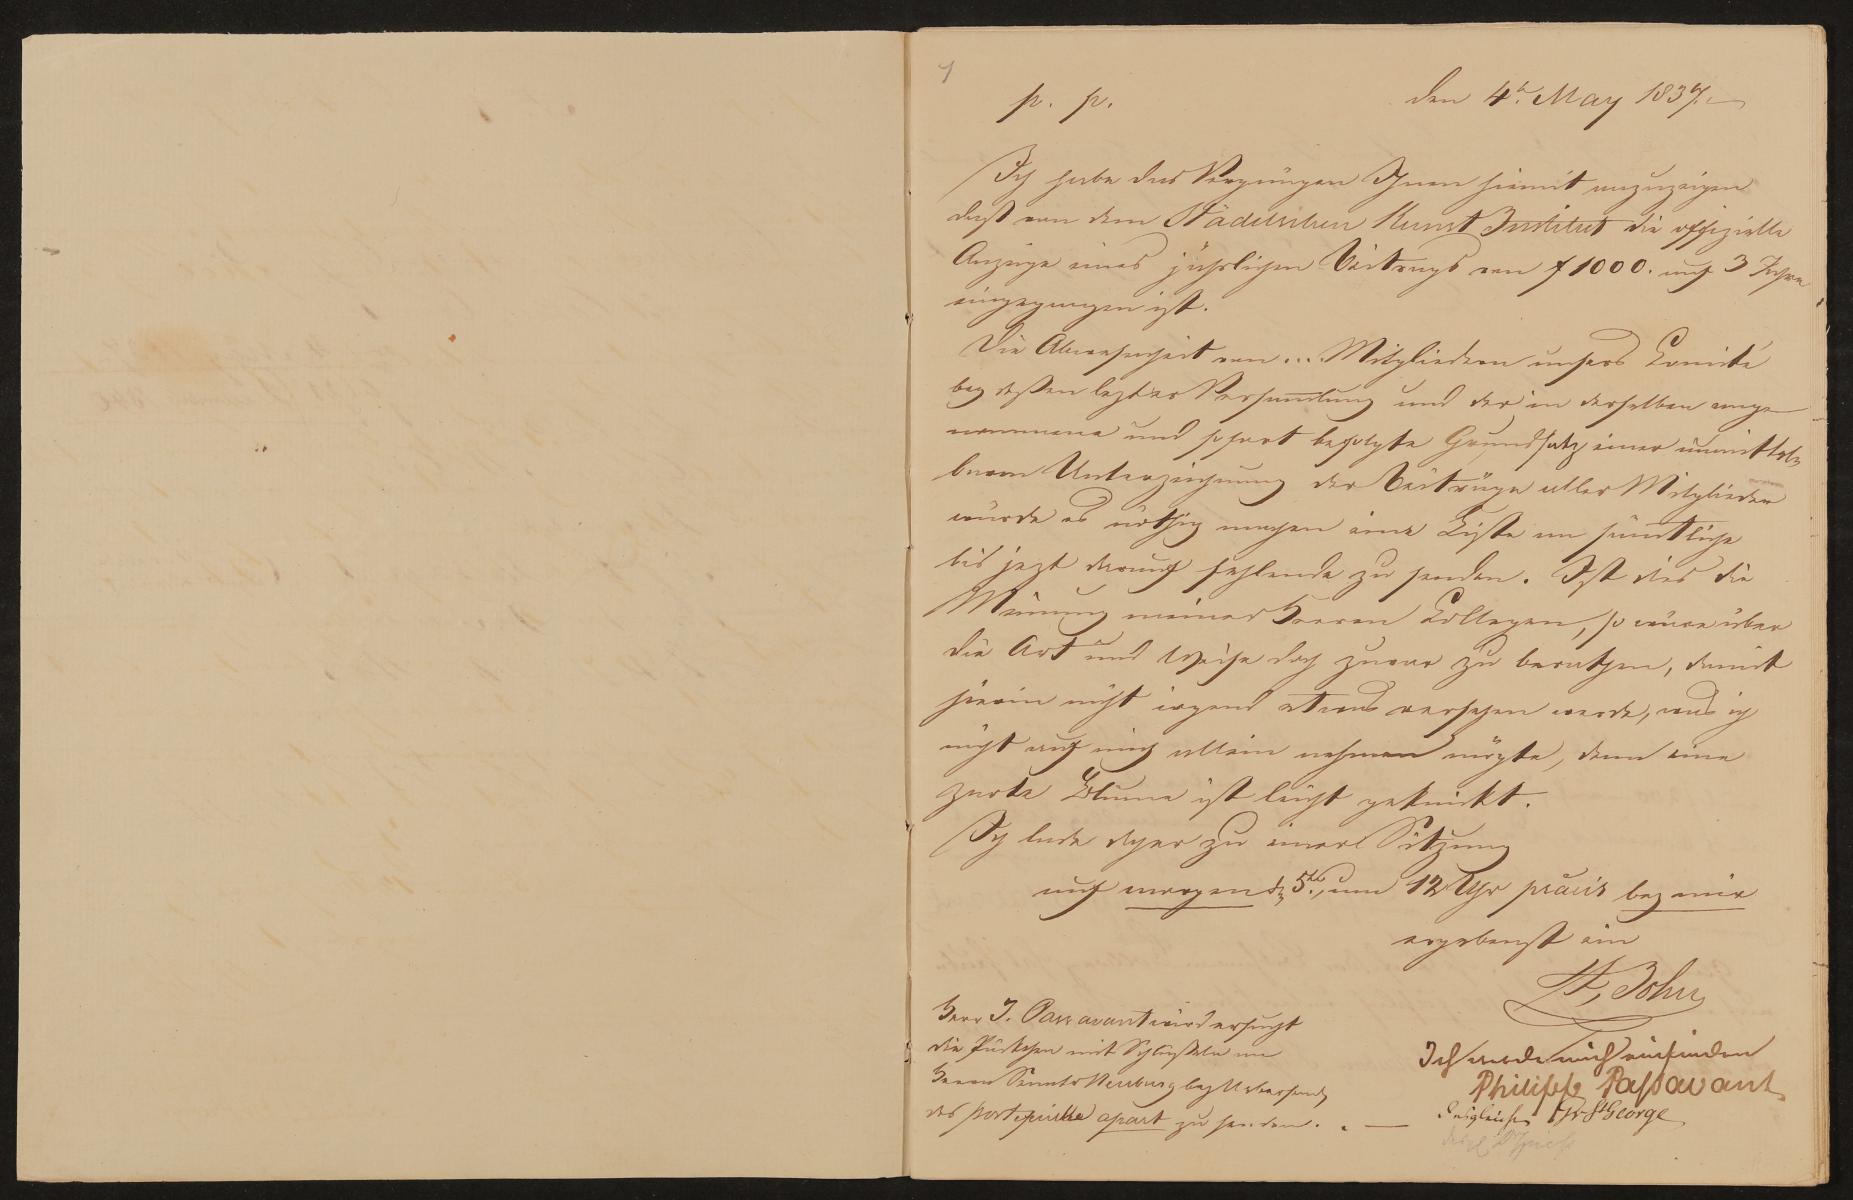 1
p. p. den 4t. May 1837.
Ich habe das Vergnügen Ihnen hiemit anzuzeigen
daß von dem Städelschen Kunst Institut die offizielle
Anzeige eines jährlichen Beitrags von f 1000. auf 3 Jahre
eingegangen ist.
Die Abwesenheit von ... Mitgliedern unsers Comité
bey deßen lezter Versammlung und der in derselben ange-
nommene und sofort befolgte Grundsatz einer unmittel-
baren Unterzeichnung der Beiträge aller Mitglieder
würde es nöthig machen eine Liste an sämtliche
bis jezt darauf fehlende zu senden. Ist dies die
Meinung meiner Herren Collegen, so wäre über
die Art und Weise doch zuvor zu berathen, damit
hierin nicht irgend etwas versehen werde, was ich
nicht auf mich allein nehmen mögte, denn eine
zarte Blume ist leicht geknickt.
Ich lade daher zu einer Sitzung
auf morgen d. 5ten, um 12 Uhr präcis bey mir
ergebenst ein
John
Herr J. Passavant wird ersucht
die Kästchen mit Schlüsseln an
Herrn Senator Neuburg bey Uebersendg
des Portefeuille apart zu senden. . —
Ich werde mich einfinden
Philipp Passavant
Desgleichen St George